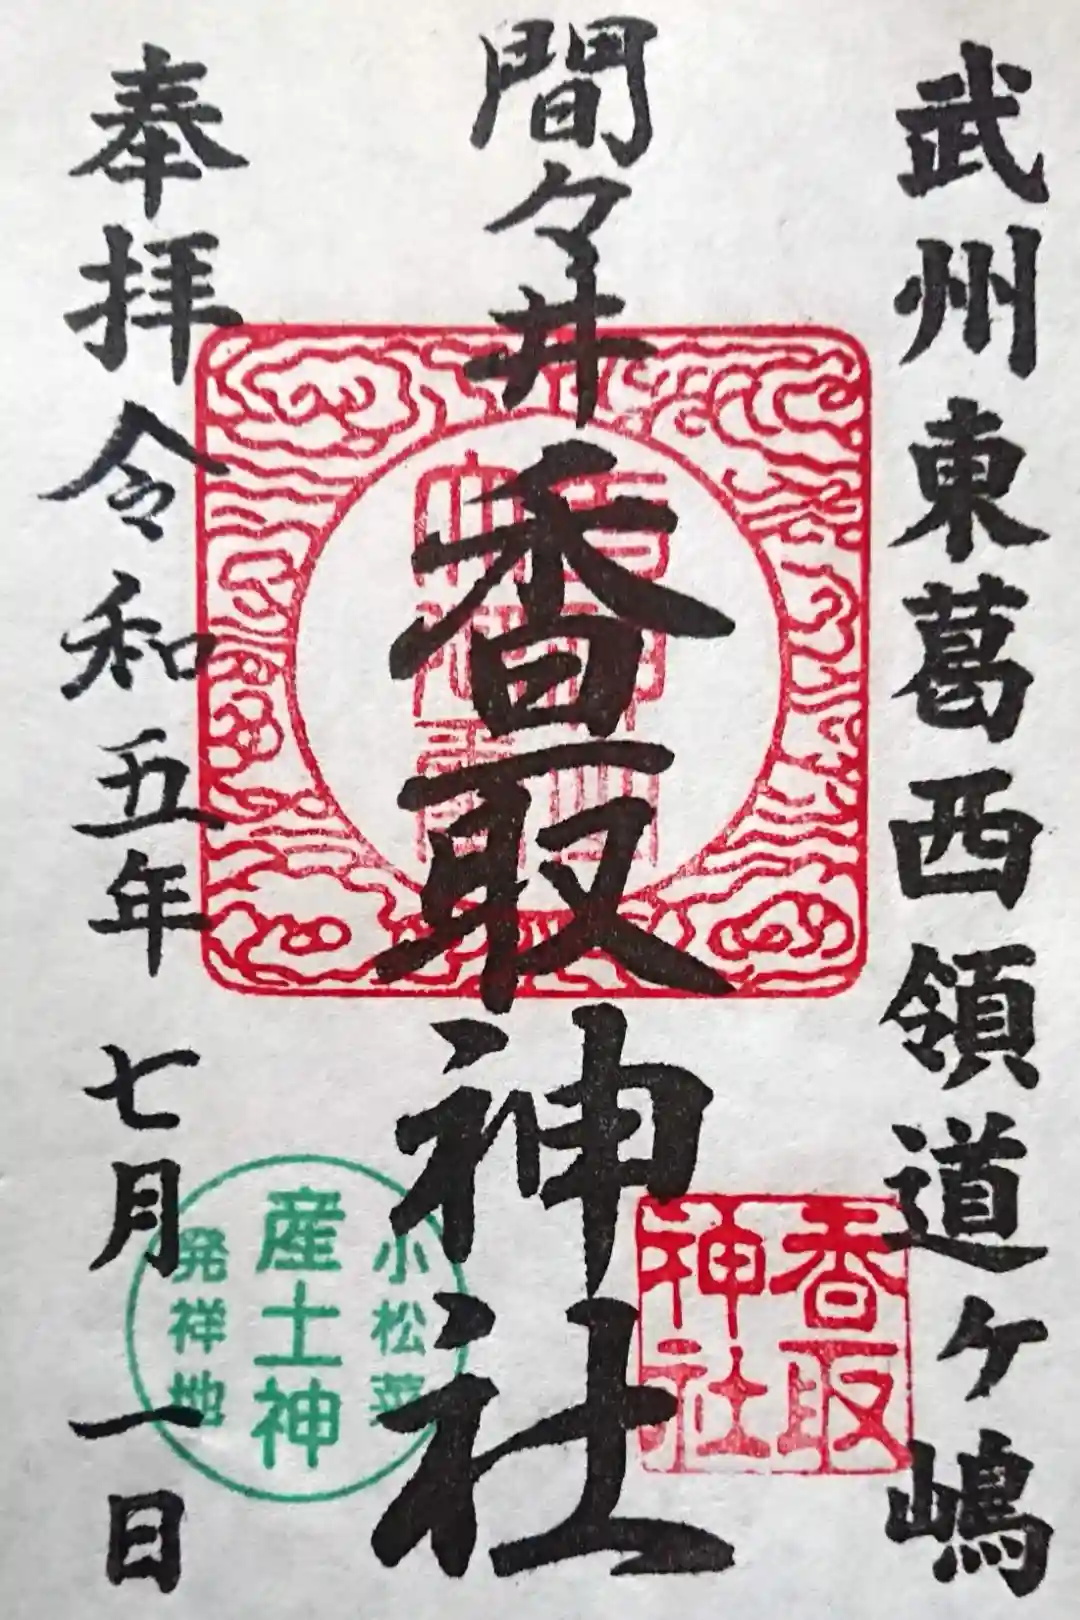 武州東葛西領道ケ嶋
間々井
香取神社
奉拝 令和五年 七月 一日
香取
神社
小松菜
産土神
発祥地